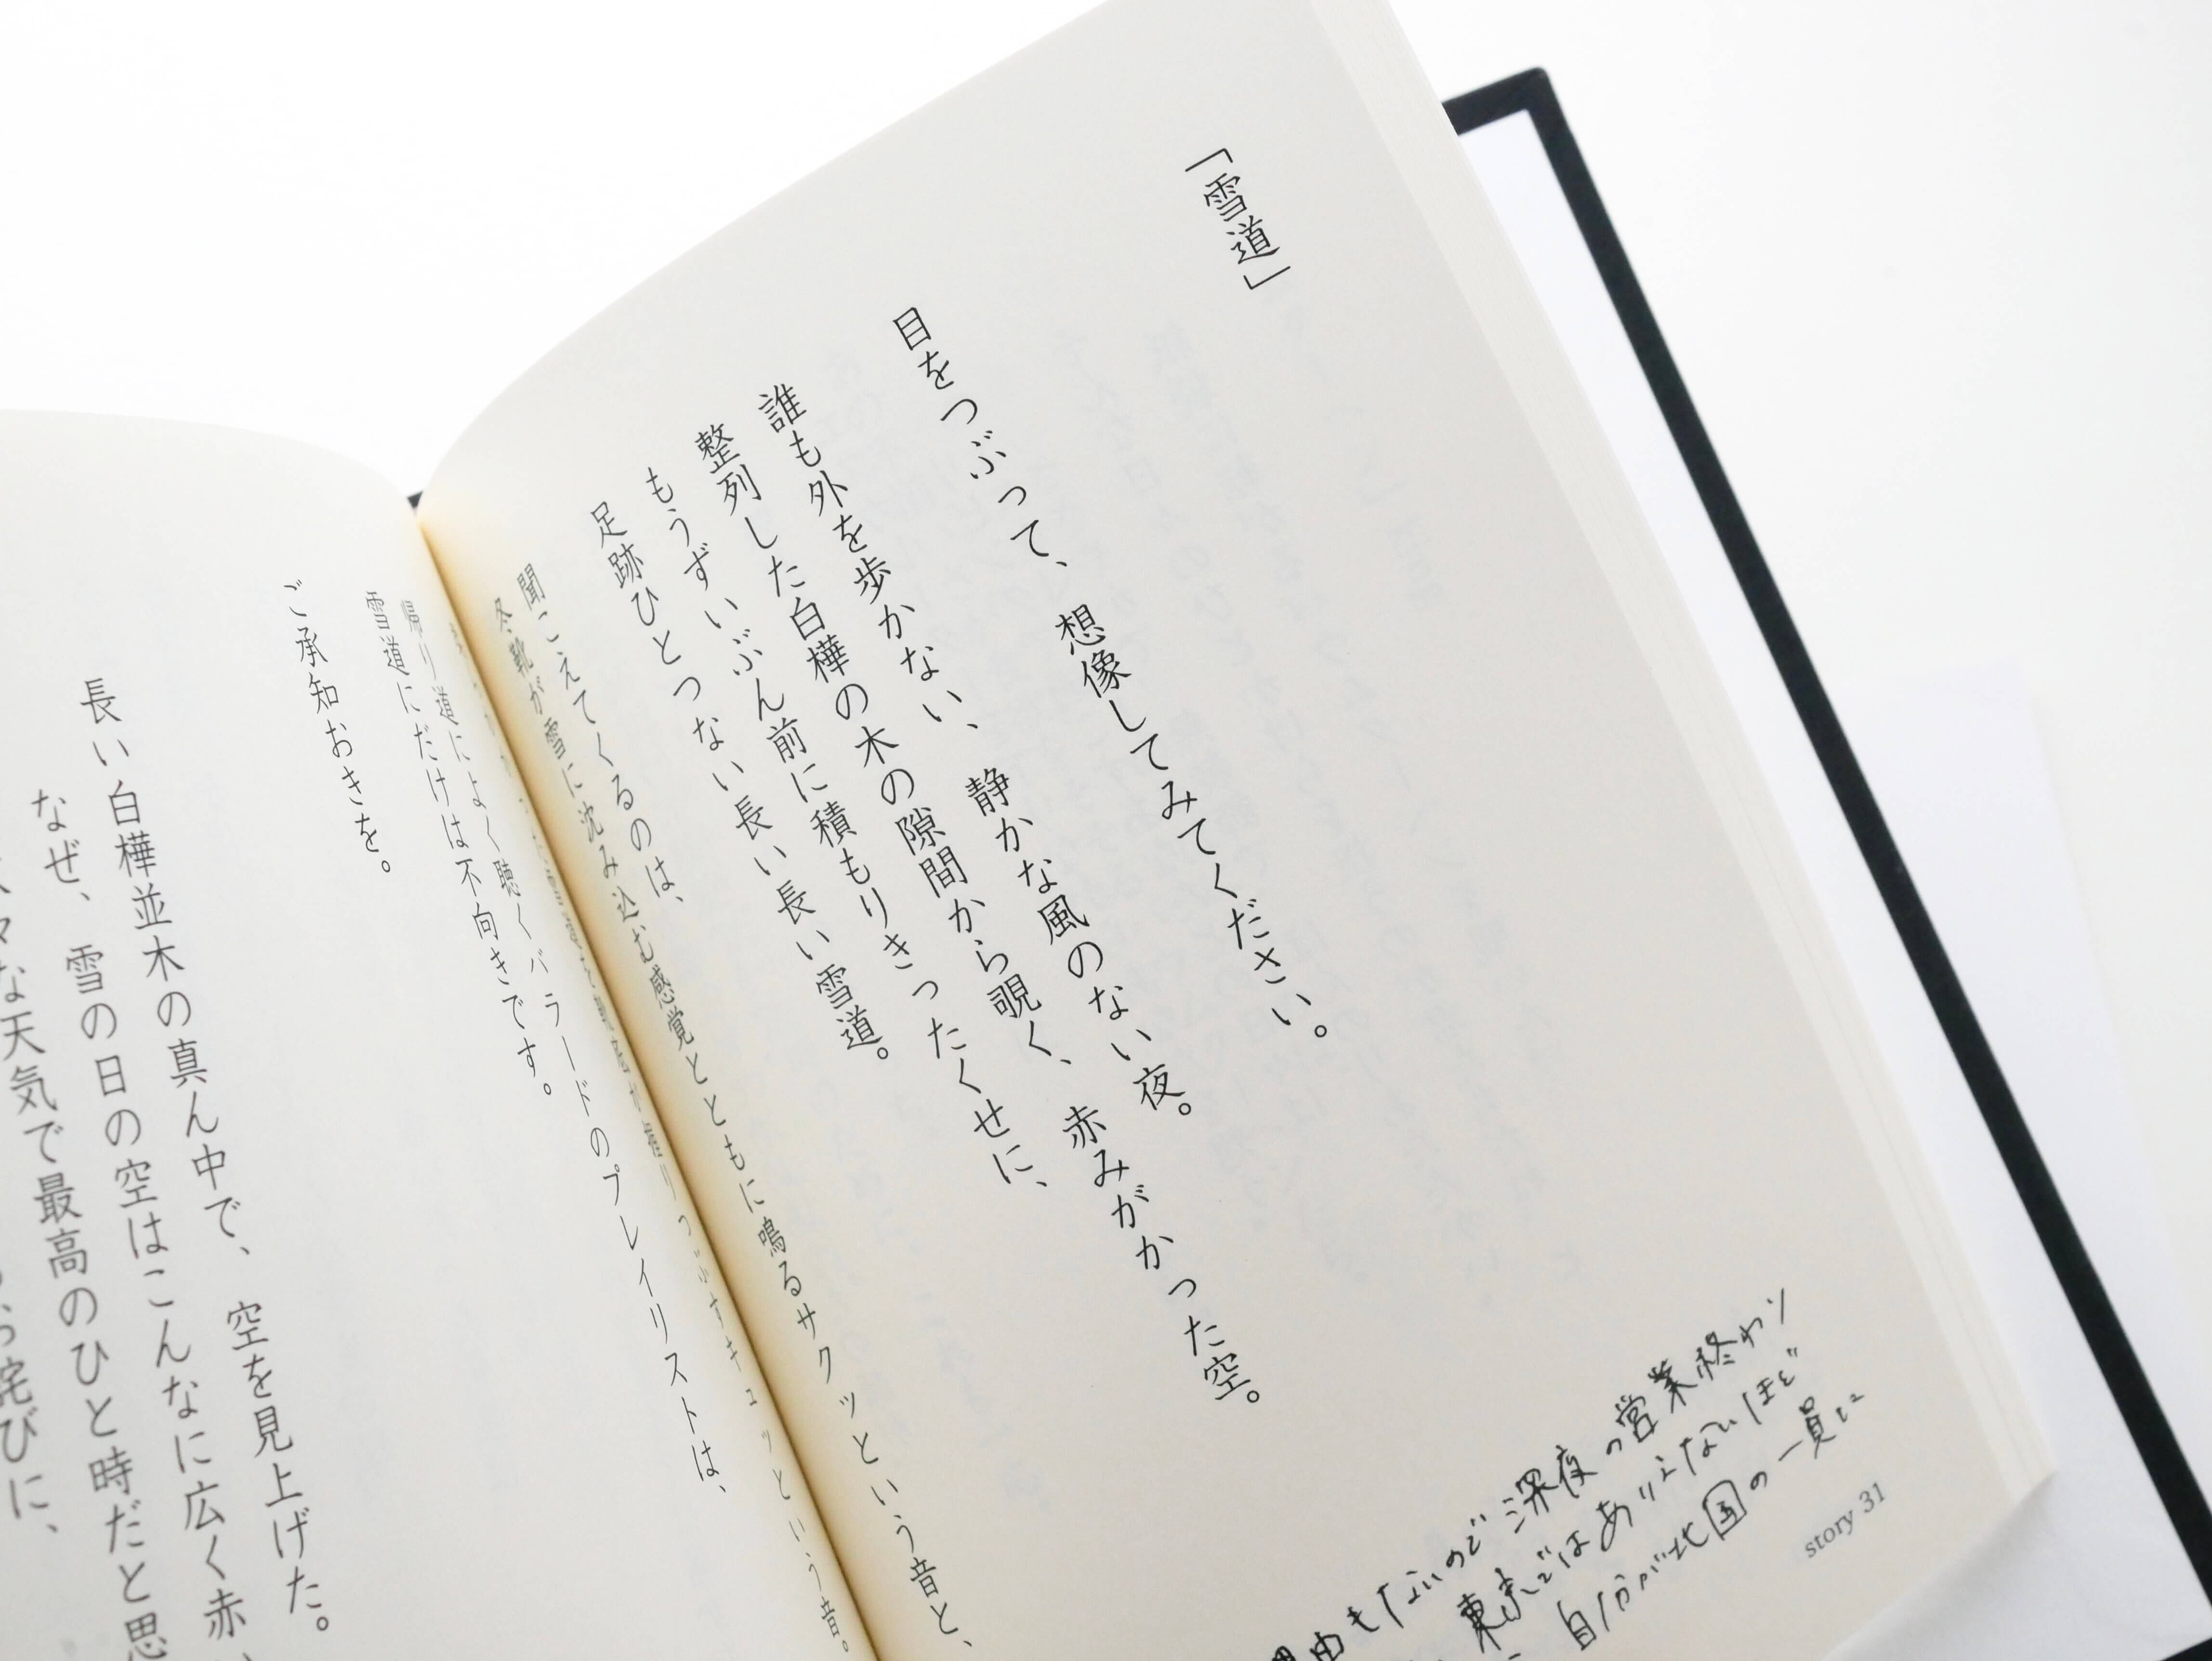 「雪道」
目をつぶって、想像してみてください。
誰も外を歩かない、静かな風のない夜。
整列した白樺の木の隙間から覗く、赤みがかった空。
もうずいぶん前に積もりきったくせに、
足跡ひとつない長い長い雪道。
聞こえてくるのは、
冬靴が雪に沈み込む感覚とともに鳴るサクッという音と、
キュッという音。
帰り道によく聴くバラードのプレイリストは、
雪道にだけは不向きです。
ご承知おきを。
長い白樺並木の真ん中で、空を見上げた。
なぜ、雪の日の空はこんなに広く赤い
な天気で最高のひと時だと思
詫びに、
理由もないので深夜の営業終わり
東京ではありえないほど
自分が北国の一員に
story 31